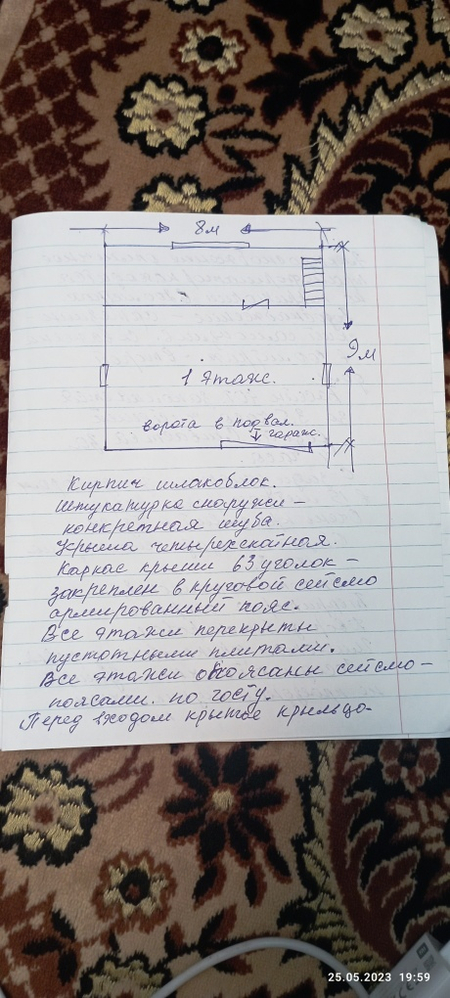 8м
9м
1 Этаж.
ворота в подвал.
гараж.
Кирпич шлакоблок.
Штукатурка снаружи –
конкретная шуба.
Крыша четырехскатная.
Каркас крыши 63 уголок –
закреплен в круговой сейсмо
армированный пояс.
Все этажи перекрыты
пустотными плитами.
Все этажи опоясаны сейсмо-
поясами. по госту.
Перед входом крытое крыльцо.
25.05.2023 19:59